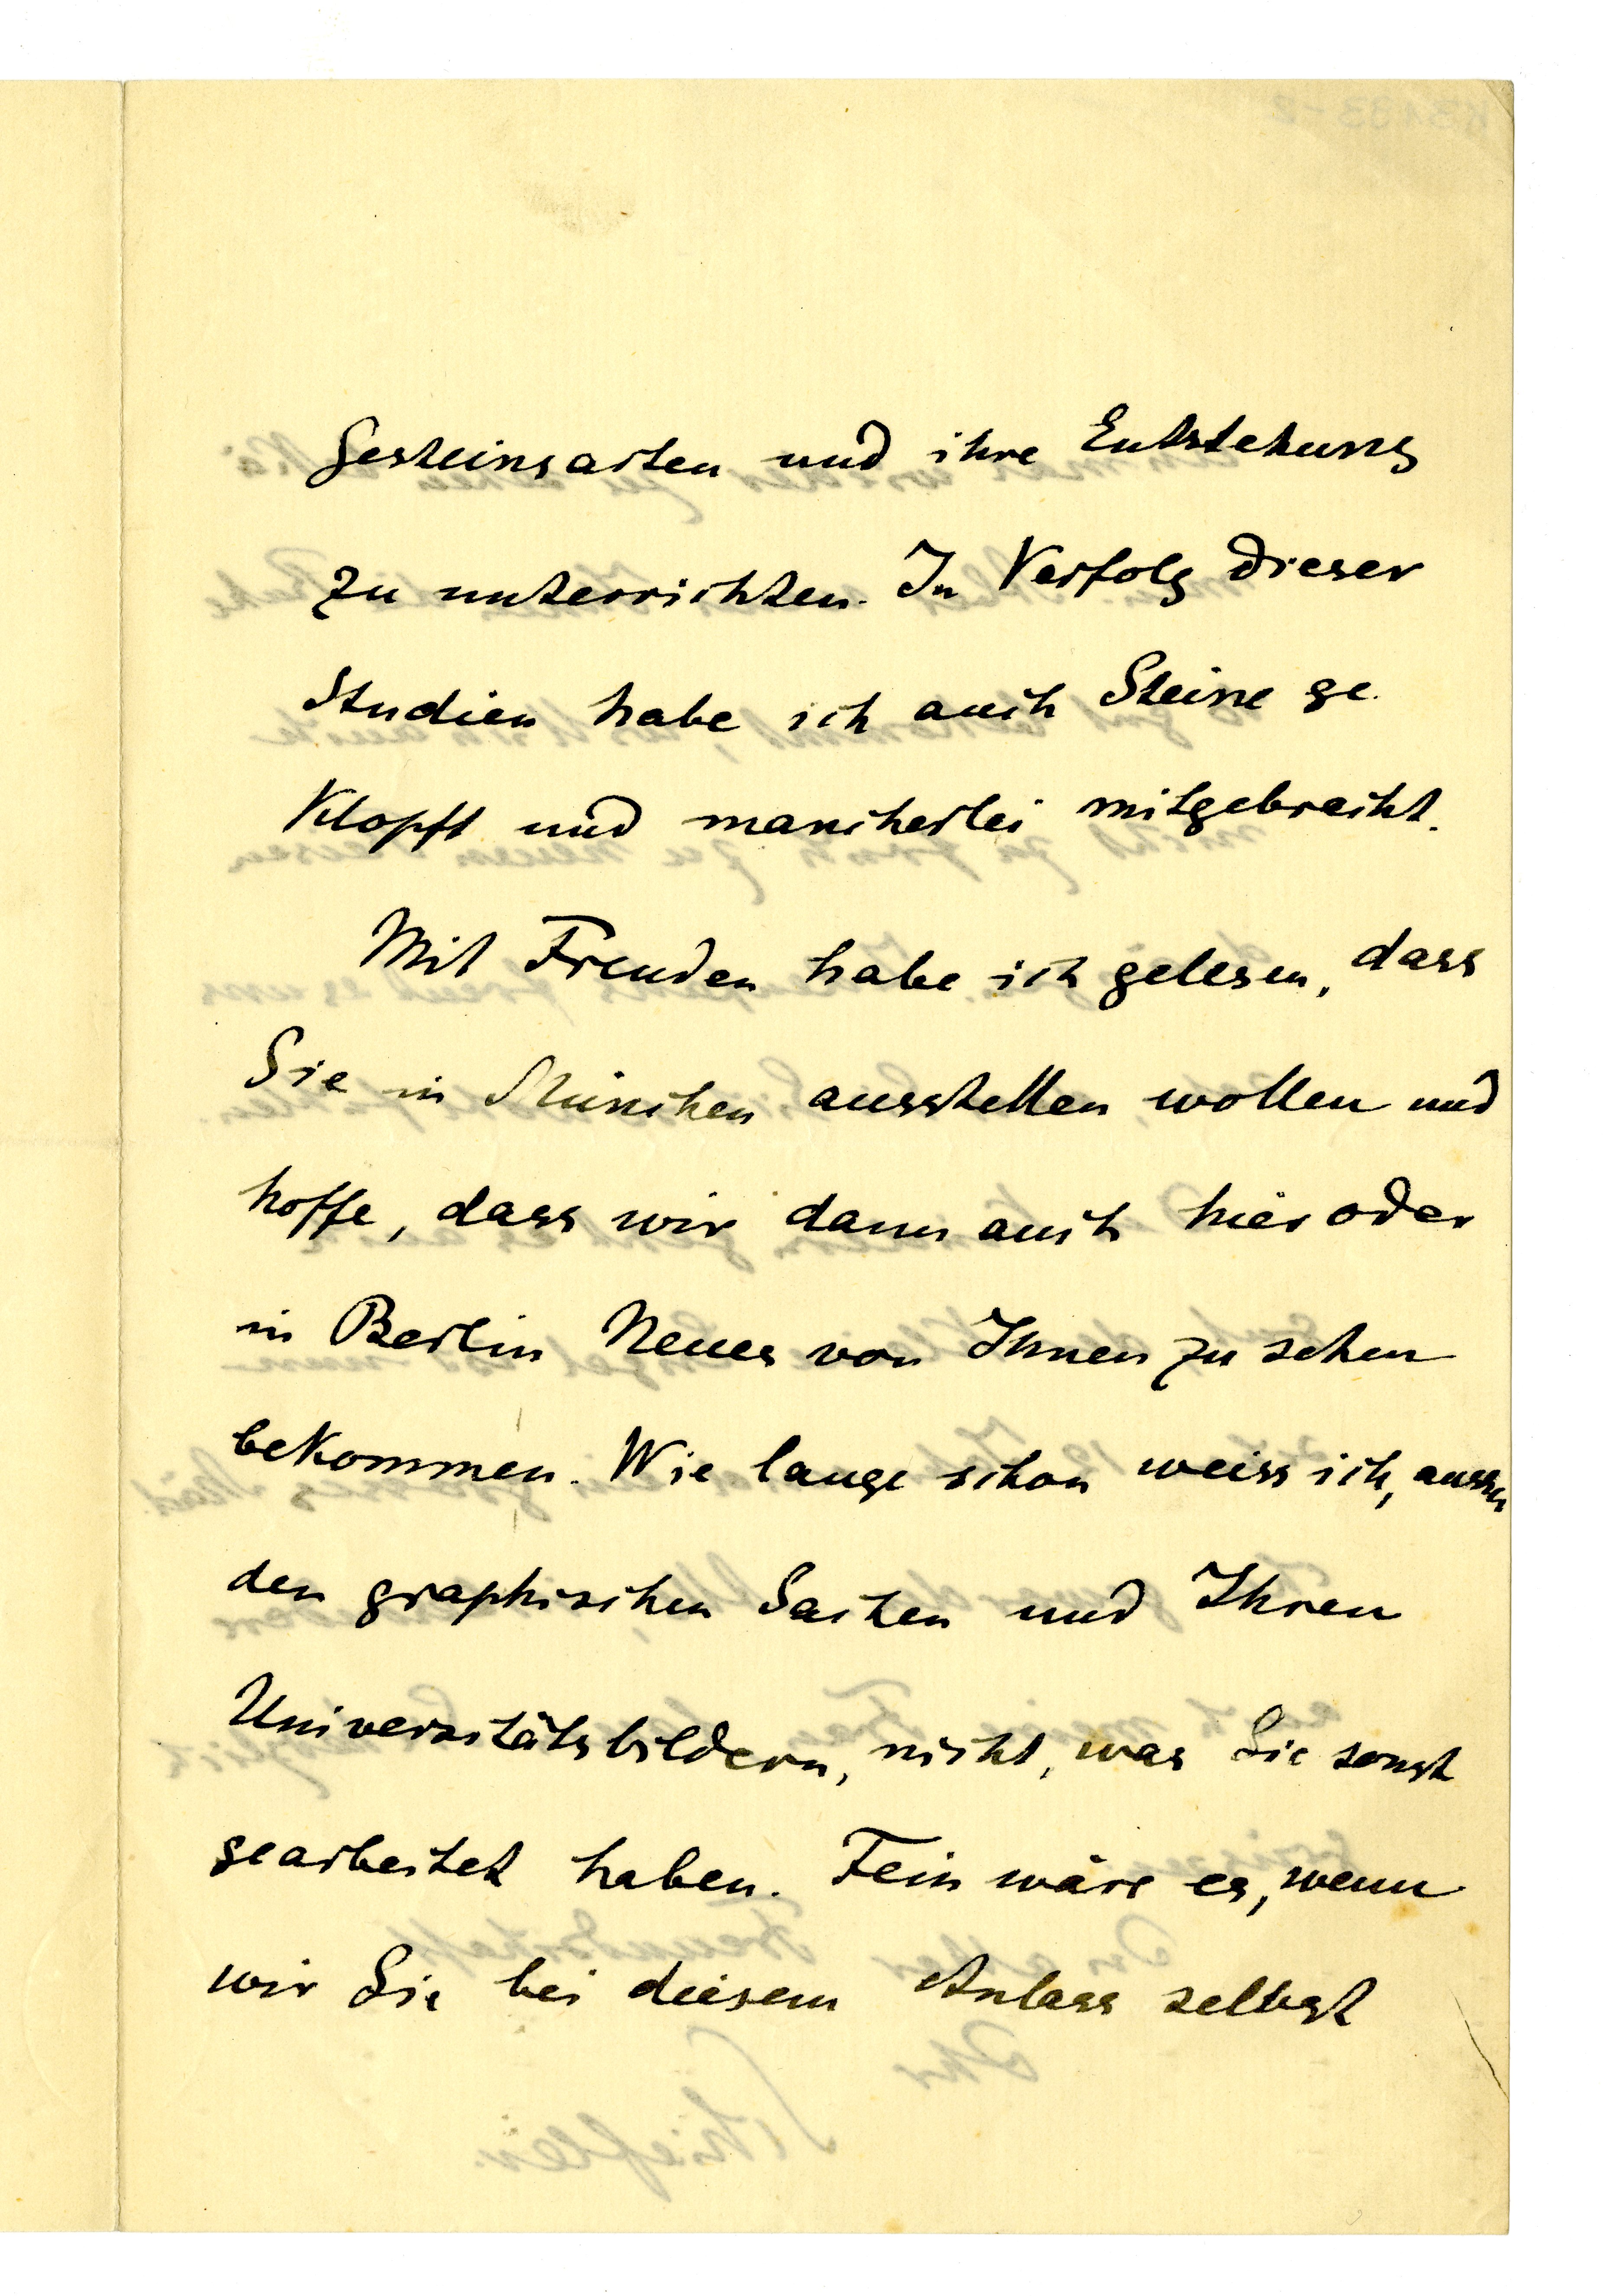 Gesteinsarten und ihre Entstehung
zu unterrichten. In Verfolg dieser
Studien habe ich auch Steine ge-
klopft und mancherlei mitgebracht.
Mit Freuden habe ich gelesen, dass
Sie in München ausstellen wollen und
hoffe, dass wir dann auch hier oder
in Berlin Neues von Ihnen zu sehen
bekommen. Wie lange schon weiss ich, ausser
den graphischen Sachen und Ihren
Universitätsbildern, nicht, was Sie sonst
gearbeitet haben. Fein wäre es, wenn
wir Sie bei diesem Anlass selbst